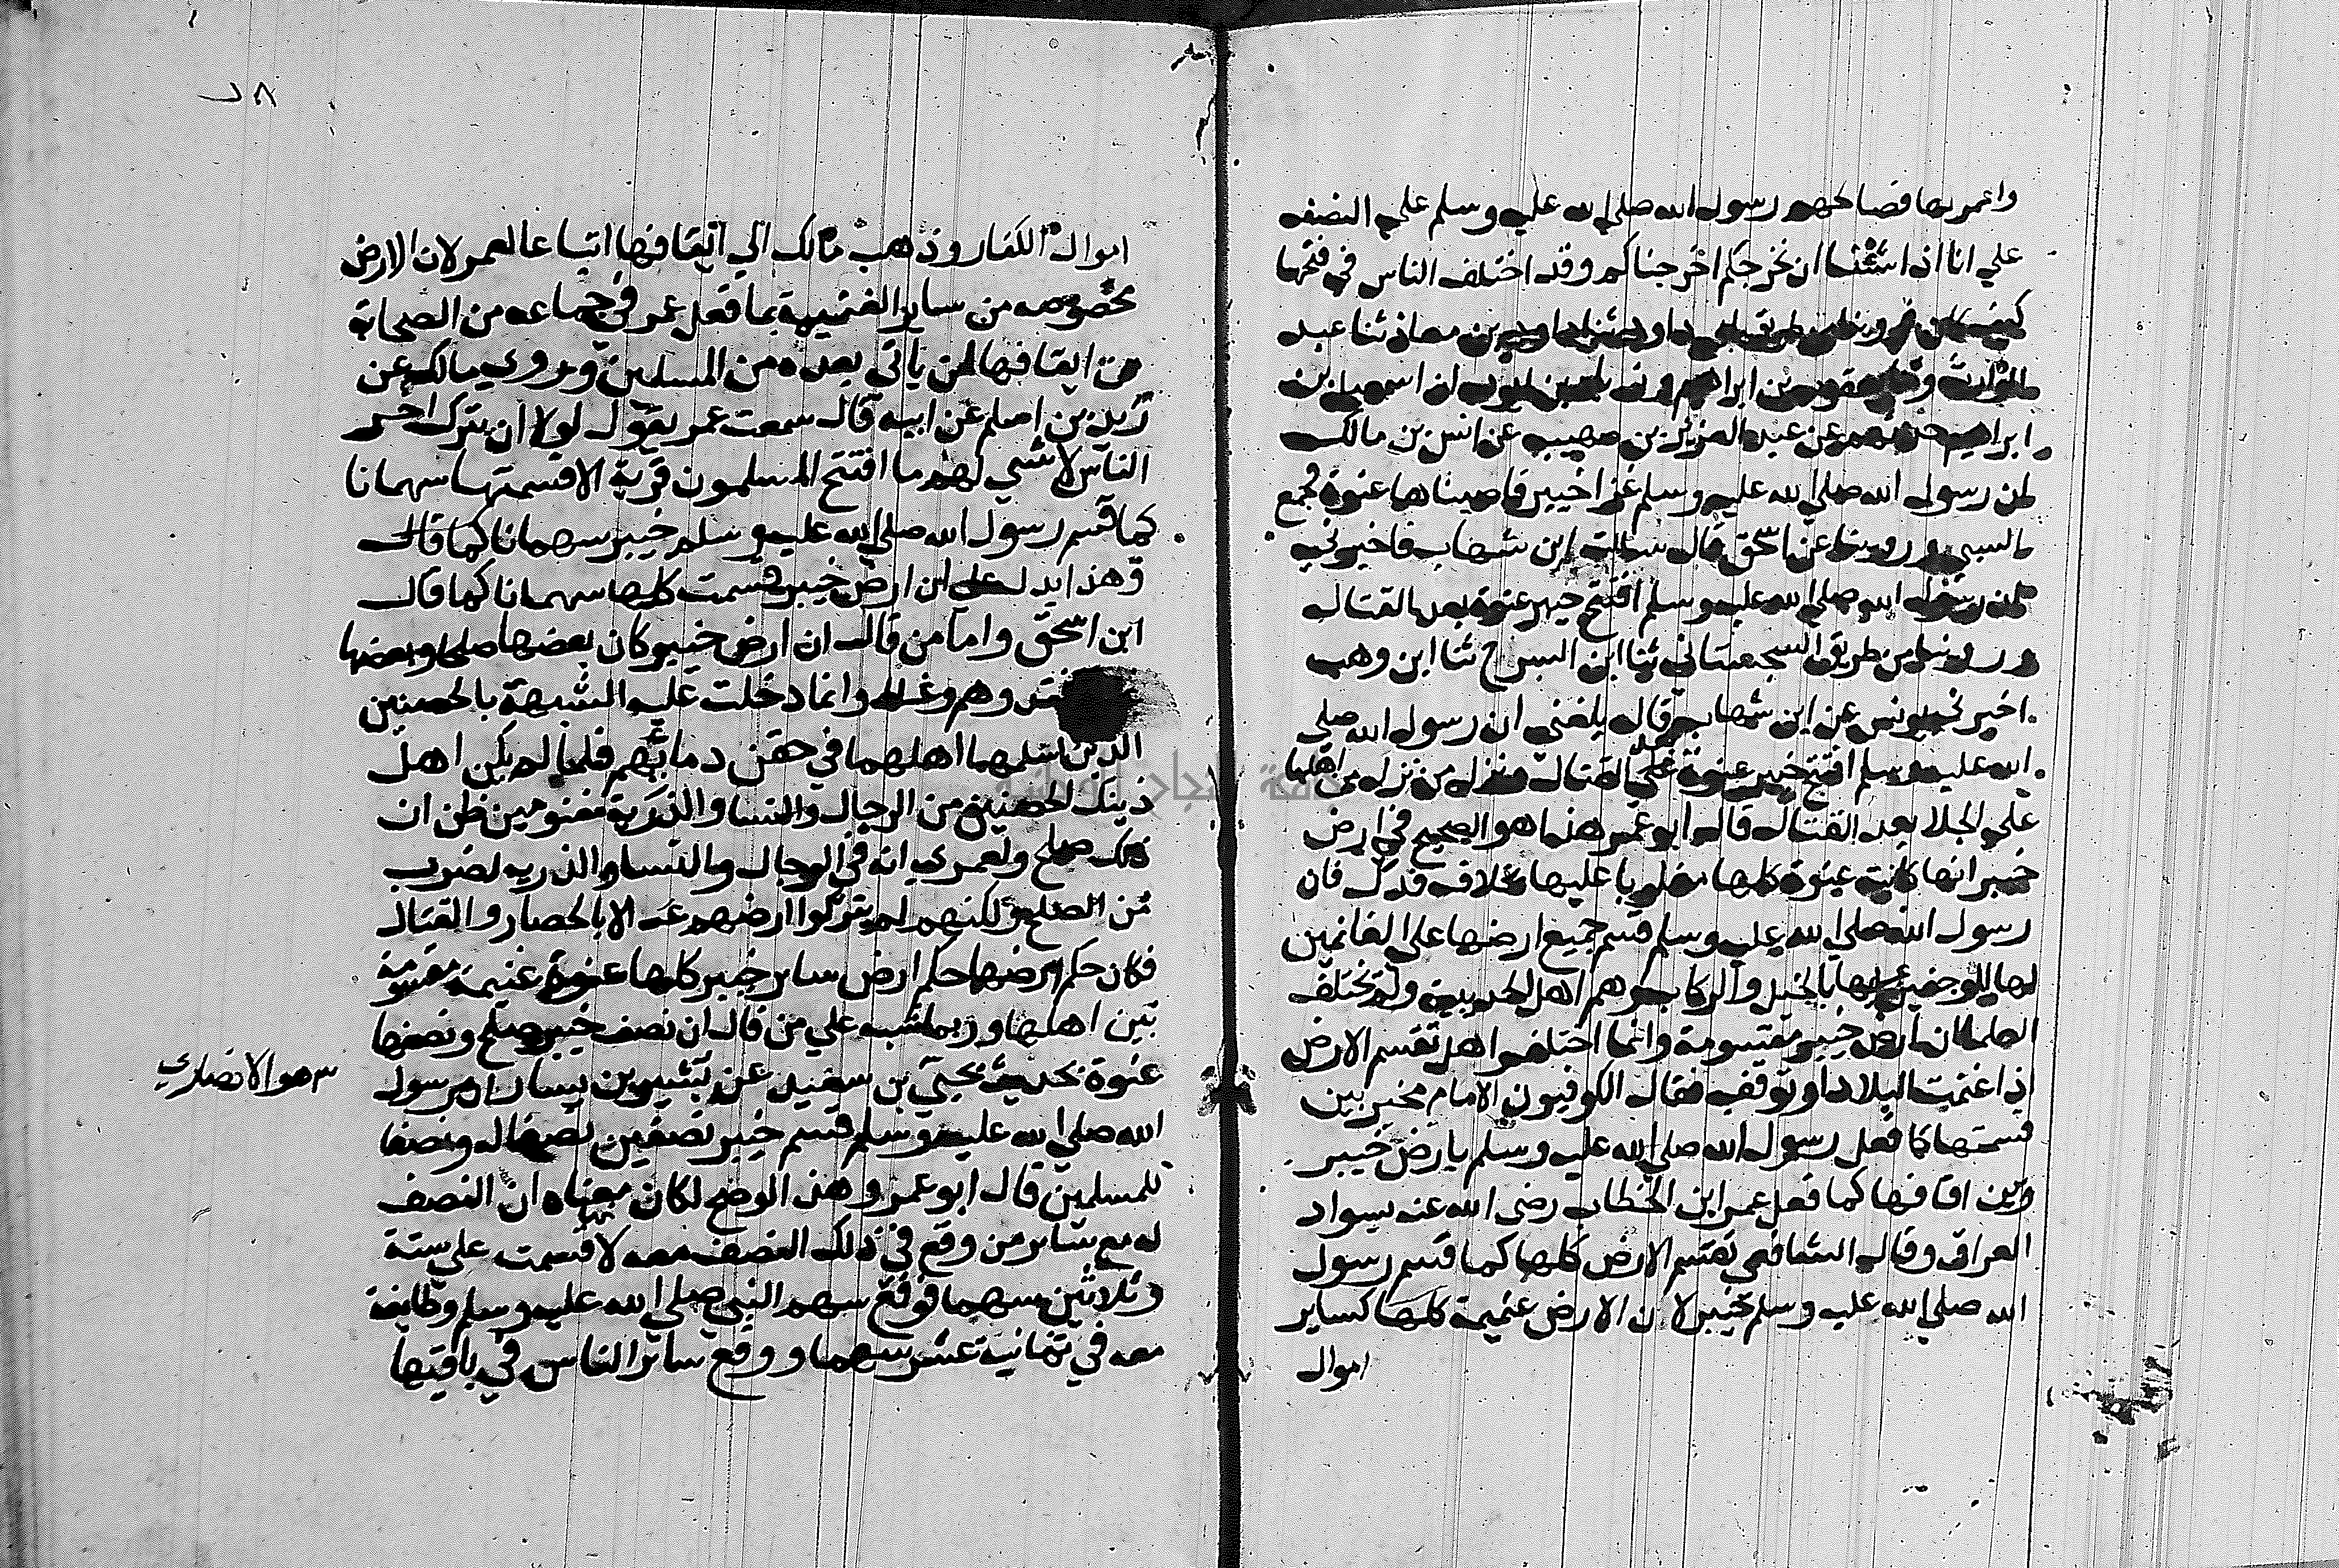 واعمر بها فصالحهم رسول الله صلي الله عليه وسلم علي النصف
علي انا اذا شئنا ان نخرجكم اخرجناكم وقد اختلف الناس في فتحها
كيف كان فروينا من طريق ابي داود ثنا داود بن معاذ ثنا عبد
الوارث وثنا يعقوب بن ابراهيم وزياد بن ايوب ان اسمعيل بن
ابراهيم حدثهم عن عبد العزيز بن صهيب عن انس بن مالك
ان رسول الله صلي الله عليه وسلم غزا خيبر فاصبناها عنوة فجمع
السبي وروينا عن ابن اسحق قال سالت ابن شهاب فاخبرني
ان رسول الله صلي الله عليه وسلم افتتح خيبر عنوة بعد القتال
وروينا من طريق السجستاني ثنا ابن السرح ثنا ابن وهب
اخبرني يونس عن ابن شهاب قال بلغني ان رسول الله صلي
الله عليه وسلم افتتح خيبر عنوة بعد القتال ونزل من نزل من اهلها
علي الجلا بعد القتال قال ابو عمر هذا هو الصحيح في ارض
خيبر انها كانت عنوة كلها مغلوبا عليها بخلاف فدك فان
رسول الله صلي الله عليه وسلم قسم جميع ارضها علي الغانمين
لها الموجفين عليها بالخيل والركاب وهم اهل الحديبية ولم تختلف
العلما ان ارض خيبر مقسومة وانما اختلفوا هل تقسم الارض
اذا غنمت البلاد او توقف فقال الكوفيون الامام مخير بين
قسمتها كما فعل رسول الله صلي الله عليه وسلم بارض خيبر
وبين اقافها كما فعل عمر ابن الخطاب رضي الله عنه بسواد
العراق وقال الشافعي تقسم الارض كلها كما قسم رسول
الله صلي الله عليه وسلم خيبر لان الارض غنيمة كلها كساير
اموال
٢٨
اموال الكفار وذهب مالك الي ايقافها اتباعا لعمر لان الارض
مخصوصه من ساير الغنيمة بما فعل عمر في جماعه من الصحابة
من ايقافها لمن ياتي بعده من المسلمين وروي مالك عن
زيد بن اسلم عن ابيه قال سمعت عمر يقول لولا ان يترك اخر
الناس لا شي لهم ما افتتح المسلمون قرية الا قسمتها سهمانا
كما قسم رسول الله صلي الله عليه وسلم خيبر سهمانا كما قال
وهذا يدل علي ان ارض خيبر قسمت كلها سهمانا كما قال
ابن اسحق واما من قال ان ارض خيبر كان بعضها صلحا وبعضها
فقد وهم وغلط وانما دخلت عليه الشبهة بالحصنين
الذين اسلمهما اهلهما في حقن دمائهم فلما لم يكن اهل
ذينك الحصنين من الرجال والنسا والذرية مغنومين ظن ان
ذلك صلح ولعمري انه في الرجال والنسا والذريه لضرب
من الصلح ولكنهم لم يتركوا ارضهم الا بالحصار والقتال
فكان حكم ارضها حكم ارض ساير خيبر كلها عنوة غنيمة مقسومة
بين اهلها وربما شبه علي من قال ان نصف خيبر صلح ونصفها
عنوة بحديث يحيي بن سعيد عن بشير بن يسار ان رسول
٣ هو الانصاري
الله صلي الله عليه وسلم قسم خيبر نصفين نصفا له ونصفا
للمسلمين قال ابو عمر وهذا لو صح لكان معناه ان النصف
له مع ساير من وقع في ذلك النصف معه لانها قسمت علي ستة
وثلاثين سهما فوقع سهم النبي صلي الله عليه وسلم وطايفة
معه في ثمانية عشر سهما ووقع ساير الناس في باقيها